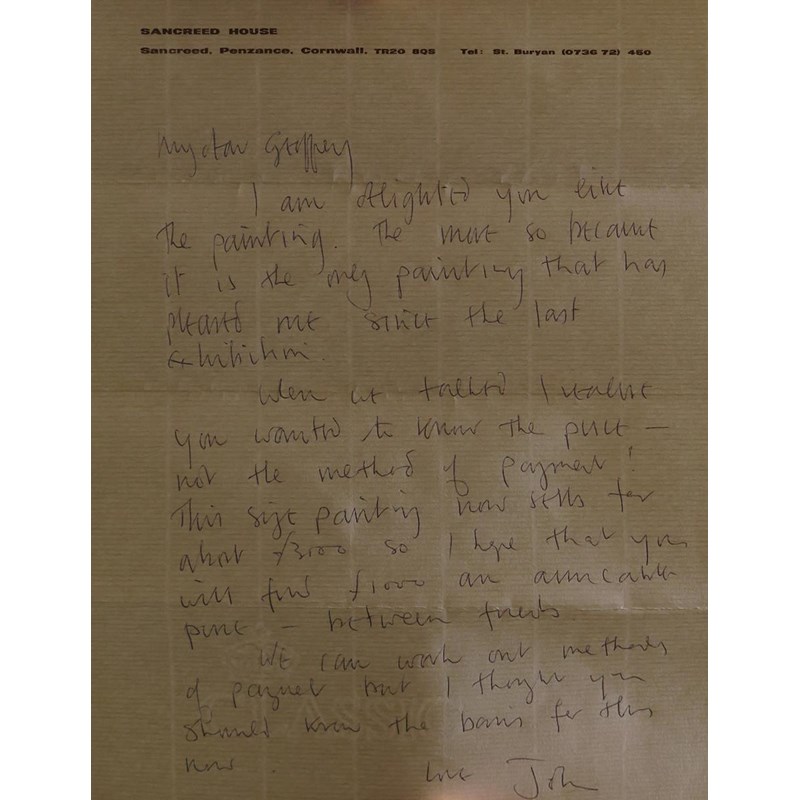 SANCREED HOUSE
Sancreed, Penzance, Cornwall, TR20 8QS Tel: St. Buryan (0736 72) 450
My dear Geoffrey
I am delighted you like
the painting. The more so because
it is the only painting that has
pleased me since the last
Exhibition.
When we talked I realise
you wanted to know the price —
not the method of payment!
This size painting now sells for
about £3,000 so I hope that you
will find £1000 an amicable
price — between friends
We can work out methods
of payment but I thought you
should know the basis for this
now.
Love John